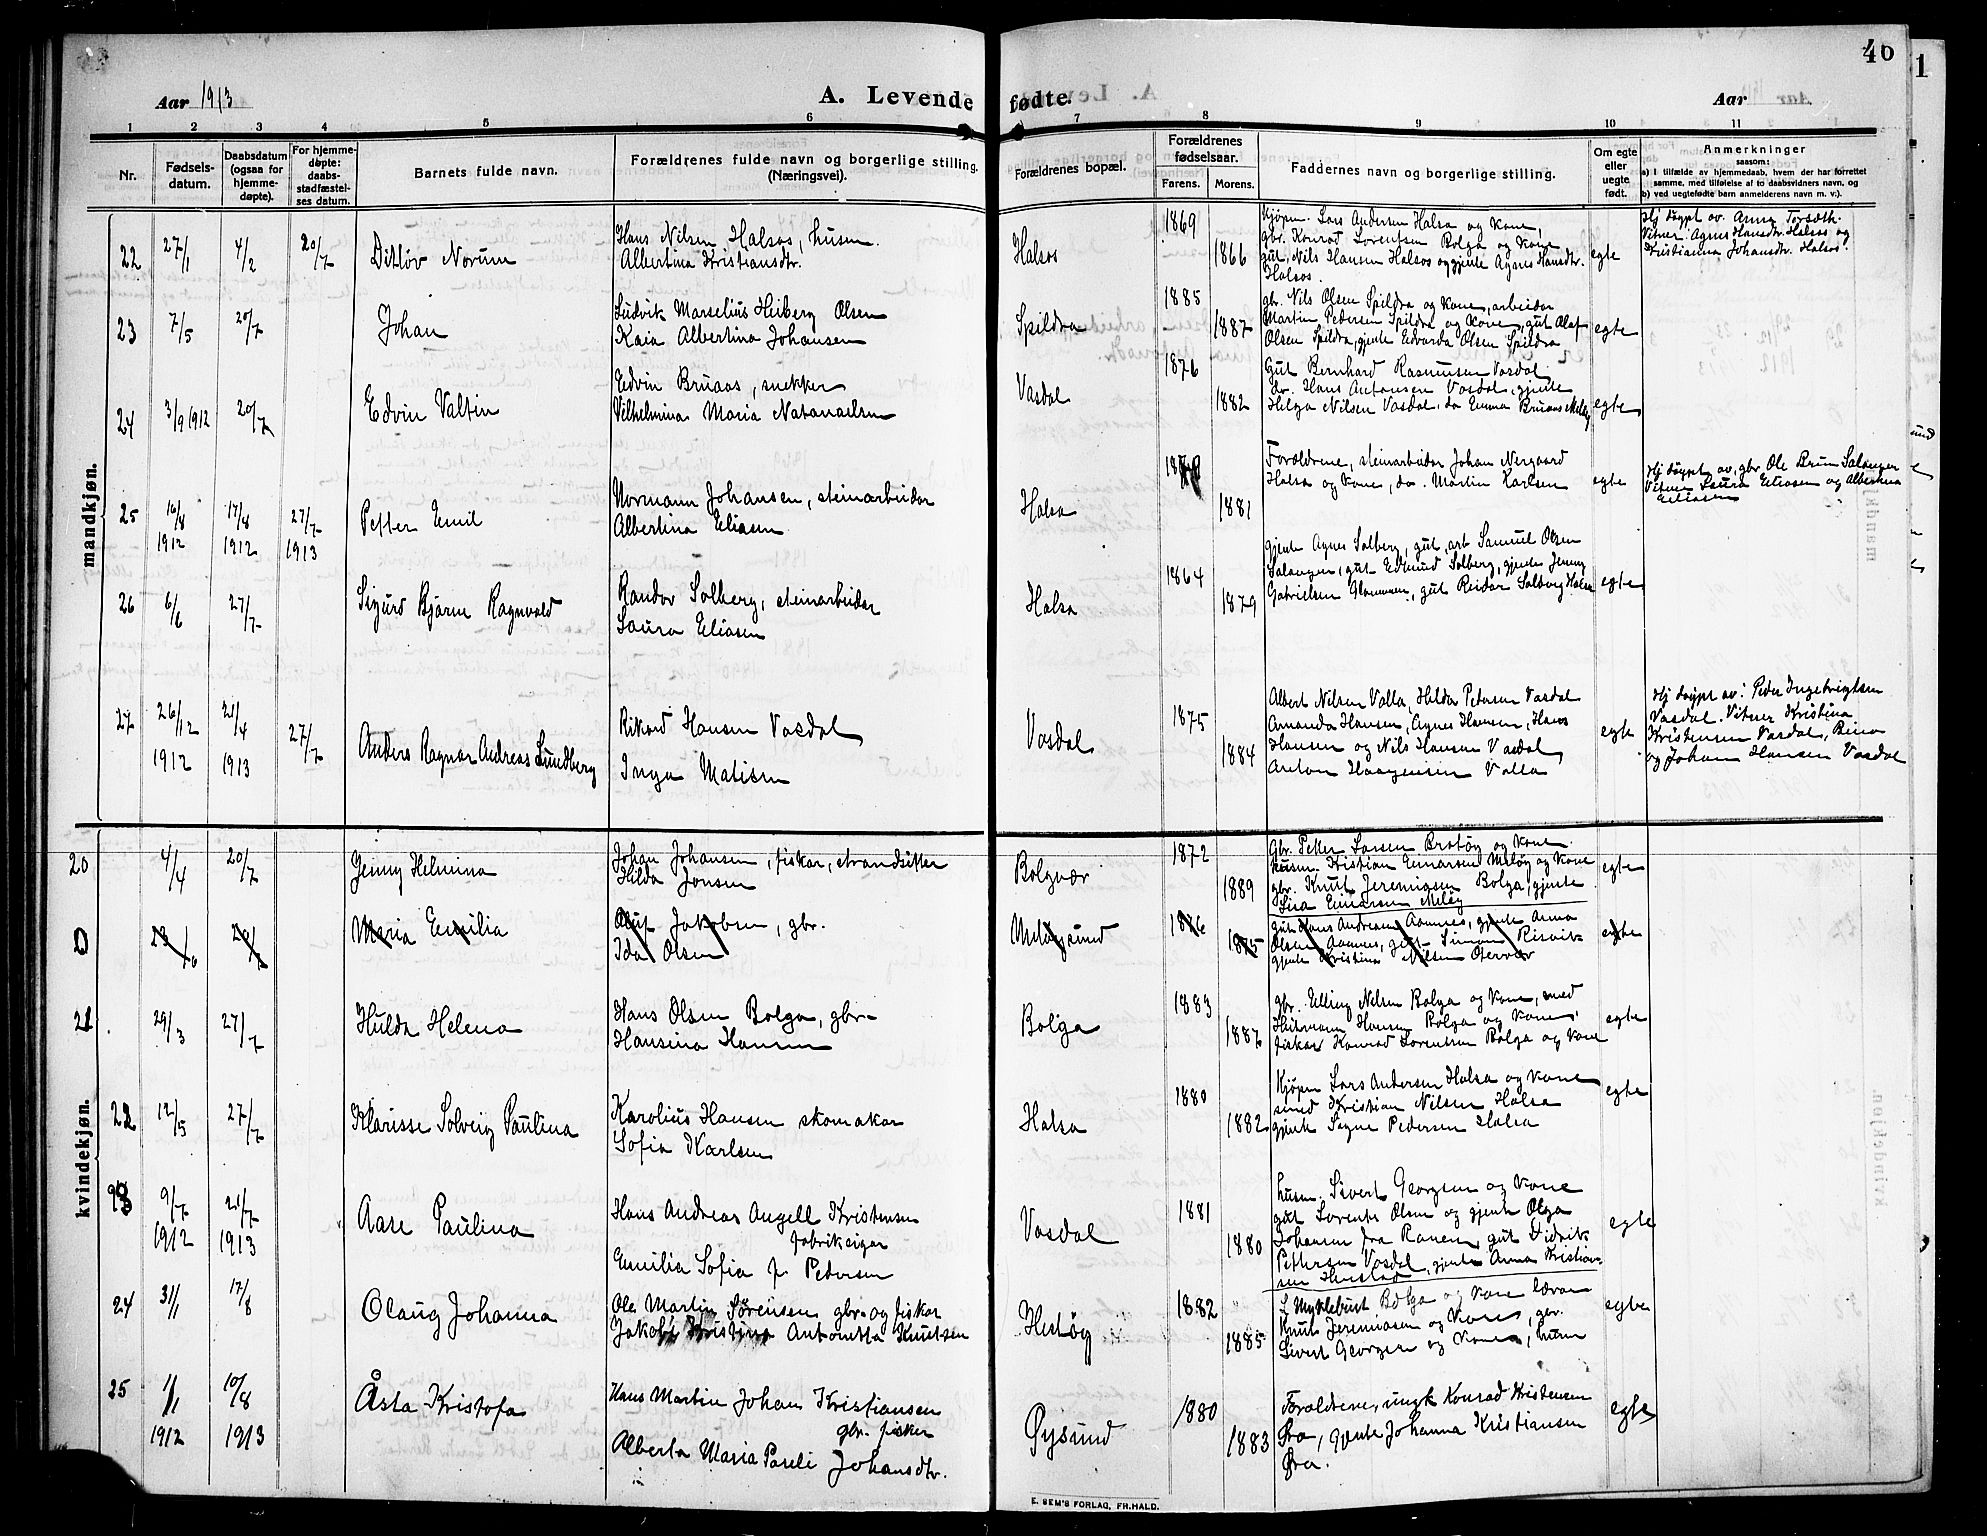 40
Aar 1913
A. Levende fødte.
Aar
1 2 3 4 5 6 7 8 9 10 11
Nr.
Fødsels-datum.
Daabsdatum (ogsaa for hjemme-døpte).
For hjemme-døpte: daabs-stadfæstel-ses datum.
Barnets fulde navn.
Forældrenes fulde navn og borgerlige stilling. (Næringsvei).
Forældrenes bopæl.
Forældrenes fødselsaar.
Farens. Morens.
Faddernes navn og borgerlige stilling.
Om egte eller uegte født.
Anmerkninger
saasom:
a) I tilfælde av hjemmedaab, hvem der har forrettet samme, med tilføielse af to daabsvidners navn, og
b) ved uegtefødte barn anmelderens navn m. v.).
mandkjøn.
22 27/1 4/2 20/7 Ditløv Norum
Hans Nilsen Halsos, husm.
Albertina Kristiansdtr.
Halsos 1869 1866
Kjøpm. Lars Andersen Halsa og kone,
gbr. Konrad Lorentsen Bolga og kone
gut, Nils Hansen Halsos og gjente Agnes Hansdtr.
Halsos
egte
Hj døypt av. Anna Forsæth.
Vitner. Agnes Hansdtr. Halsos og
Kristianna Johansdtr. Halsos.
23 7/5 20/7 Johan
Ludvik Marselius Heiberg Olsen
Kaia Albertina Johansen
Spildra 1885 1887
gbr. Nils Olsen Spildra og kone, arbeidar
Martin Pedersen Spildra og kone, gut Olaf
Olsen Spildra, gjente Edvarda Olsen Spildra
egte
24 3/9 1912 20/7 Edvin Valtin
Edvin Bruaas, snekker
Vilhelmina Maria Natanaelsen
Vasdal 1876 1882
Gut Bernhard Rasmussen Vasdal
do. Hans Antonsen Vasdal, gjente
Helga Nilsen Vasdal, do Emma Bruaas Meløy
egte
25 16/8 1912 17/8 1912 27/7 1913 Petter Emil
Normann Johansen, steinarbeidar
Albertina Eliasen
Halsa 1881
Foreldrene, steinarbeidar Johan Nergaard
Halsa og kone, do. Martin Karlsen
egte
Hj døypt av, gbr Ole Brun Salangen
Vitner Laura Eliasen og Albertina
Eliasen
26 6/6 27/7 Sigurd Bjarne Ragnvald
Randor Solberg, steinarbeidar
Laura Eliasen
Halsa 1864 1879
gjente Agnes Solberg, gut, arb Samuel Olsen
Salangen, gut Edmund Solberg, gjente Jenny
Gabrielsen Glommen, gut Reidar Solberg Halsa
egte
27 26/12 1912 21/4 1913 27/7 Anders Ragnar Andreas Lundberg
Rikard Hansen Vasdal
Inga Matisen
Vasdal 1875 1884
Albert Nilsen Valla, Hilda Petersen Vasdal
Amanda Hansen, Agnes Hansen, Hans
Hansen og Nils Hansen Vasdal,
Anton Haagensen Valla
egte
Hj døypt av: Peder Ingebrigtsen
Vasdal. Vitner Kristina
Kristensen Vasdal,
og Johan Hansen Vasdal
kvindekjøn.
20 4/4 20/7 Jenny Helmina
Johan Johansen, fiskar, strandsitter
Hilda Jonsen
Bolgvær 1872 1889
Gbr. Petter Larsen Brotøy og kone
husm. Kristian Einarsen Meløy og kone
gbr. Knut Jeremiasen Bolga, gjente
Lisa Einarsen Meløy
egte
0 Maria Emilia
Oluf Jakobsen, gbr.
Ida Olsen
Meløysund 1876 1875
gut Hans Andreasen Aamnes, gjente Anna
Olsen Aamnes, gut Simon Risvik
gjente Kristina Nilsen Otervær
egte
21 29/3 27/7 Hulda Helena
Hans Olsen Bolga, gbr.
Hansina Hansen
Bolga 1883 1887
gbr. Elling Nilsen Bolga og kone, smed
Heitmann Hansen Bolga og kone,
fiskar Konrad Lorentsen Bolga og kone
egte
22 12/5 27/7 Klarisse Solveig Paulina
Karolius Hansen skomakar
Sofia Karlsen
Halsa 1880 1882
Kjøpm Lars Andersen Halsa og kone
smed Kristian Nilsen Halsa
gjente Signe Pedersen Halsa
egte
23 9/7 1912 21/7 1913 Aase Paulina
Hans Andreas Angell Kristensen
fabrikeigar
Emilia Sofia f. Pedersen
Vasdal 1881 1880
husm. Sivert Georgsen og kone
gut Lorents Olsen og gjente Olga
Johansen fra Ranen, gut Didrik
Pettersen Vasdal, gjente Anna Kristian-
sen Hestad
egte
24 31/1 17/8 Olaug Johanna
Ole Martin Sørensen gbr. og fiskar
Jakobi Kristina Antonetta Knutsen
Hestøy 1882 1885
L Myklebust Bolga og kone lærar
Knut Jeremiasen og kone, gbr.
Sivert Georgsen og kone, husm
egte
25 1/1 1912 10/8 1913 Åsta Kristofa
Hans Martin Johan Kristiansen
gbr. fisker
Alberta Maria Pareli Johansdtr.
Øysund 1880 1883
Foreldrene, ungk Konrad Kristensen
Øra, gjente Johanna Kristiansen
Øra.
egte
E. SEM'S FORLAG, FR.HALD.